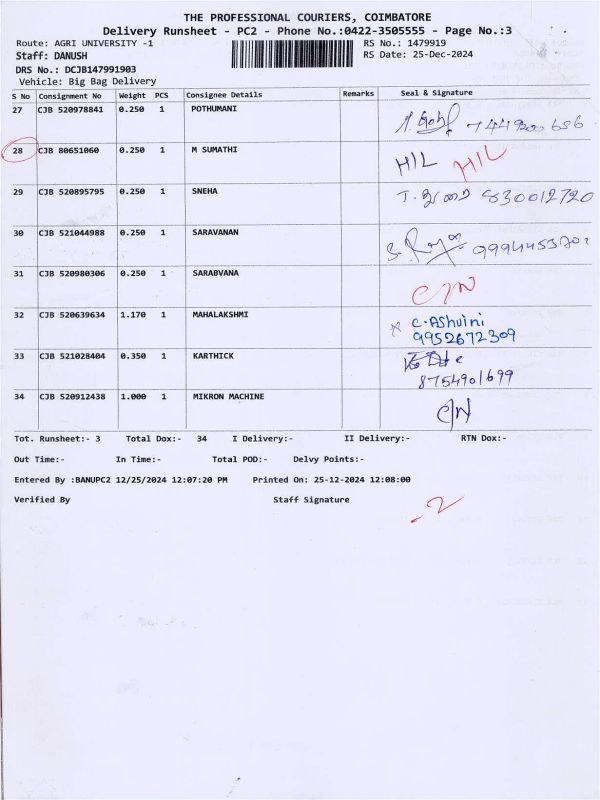 THE PROFESSIONAL COURIERS, COIMBATORE
Delivery Runsheet - PC2 - Phone No.:0422-3505555 - Page No.:3
Route: AGRI UNIVERSITY -1 RS No.: 1479919
Staff: DANUSH RS Date: 25-Dec-2024
DRS No.: DCJB147991903
Vehicle: Big Bag Delivery
S No Consignment No Weight PCS Consignee Details Remarks Seal & Signature
27 CJB 520978841 0.250 1 POTHUMANI
28 CJB 80651060 0.250 1 M SUMATHI H/L H/L
29 CJB 520895795 0.250 1 SNEHA 830012720
30 CJB 521044988 0.250 1 SARAVANAN
31 CJB 520980306 0.250 1 SARABVANA C/N
32 CJB 520639634 1.170 1 MAHALAKSHMI C.AShvini
9952672309
33 CJB 521028404 0.350 1 KARTHICK
8754901699
34 CJB 520912438 1.000 1 MIKRON MACHINE C/N
Tot. Runsheet:- 3 Total Dox:- 34 I Delivery:- II Delivery:- RTN Dox:-
Out Time:- In Time:- Total POD:- Delvy Points:-
Entered By :BANUPC2 12/25/2024 12:07:20 PM Printed On: 25-12-2024 12:08:00
Verified By Staff Signature
-2